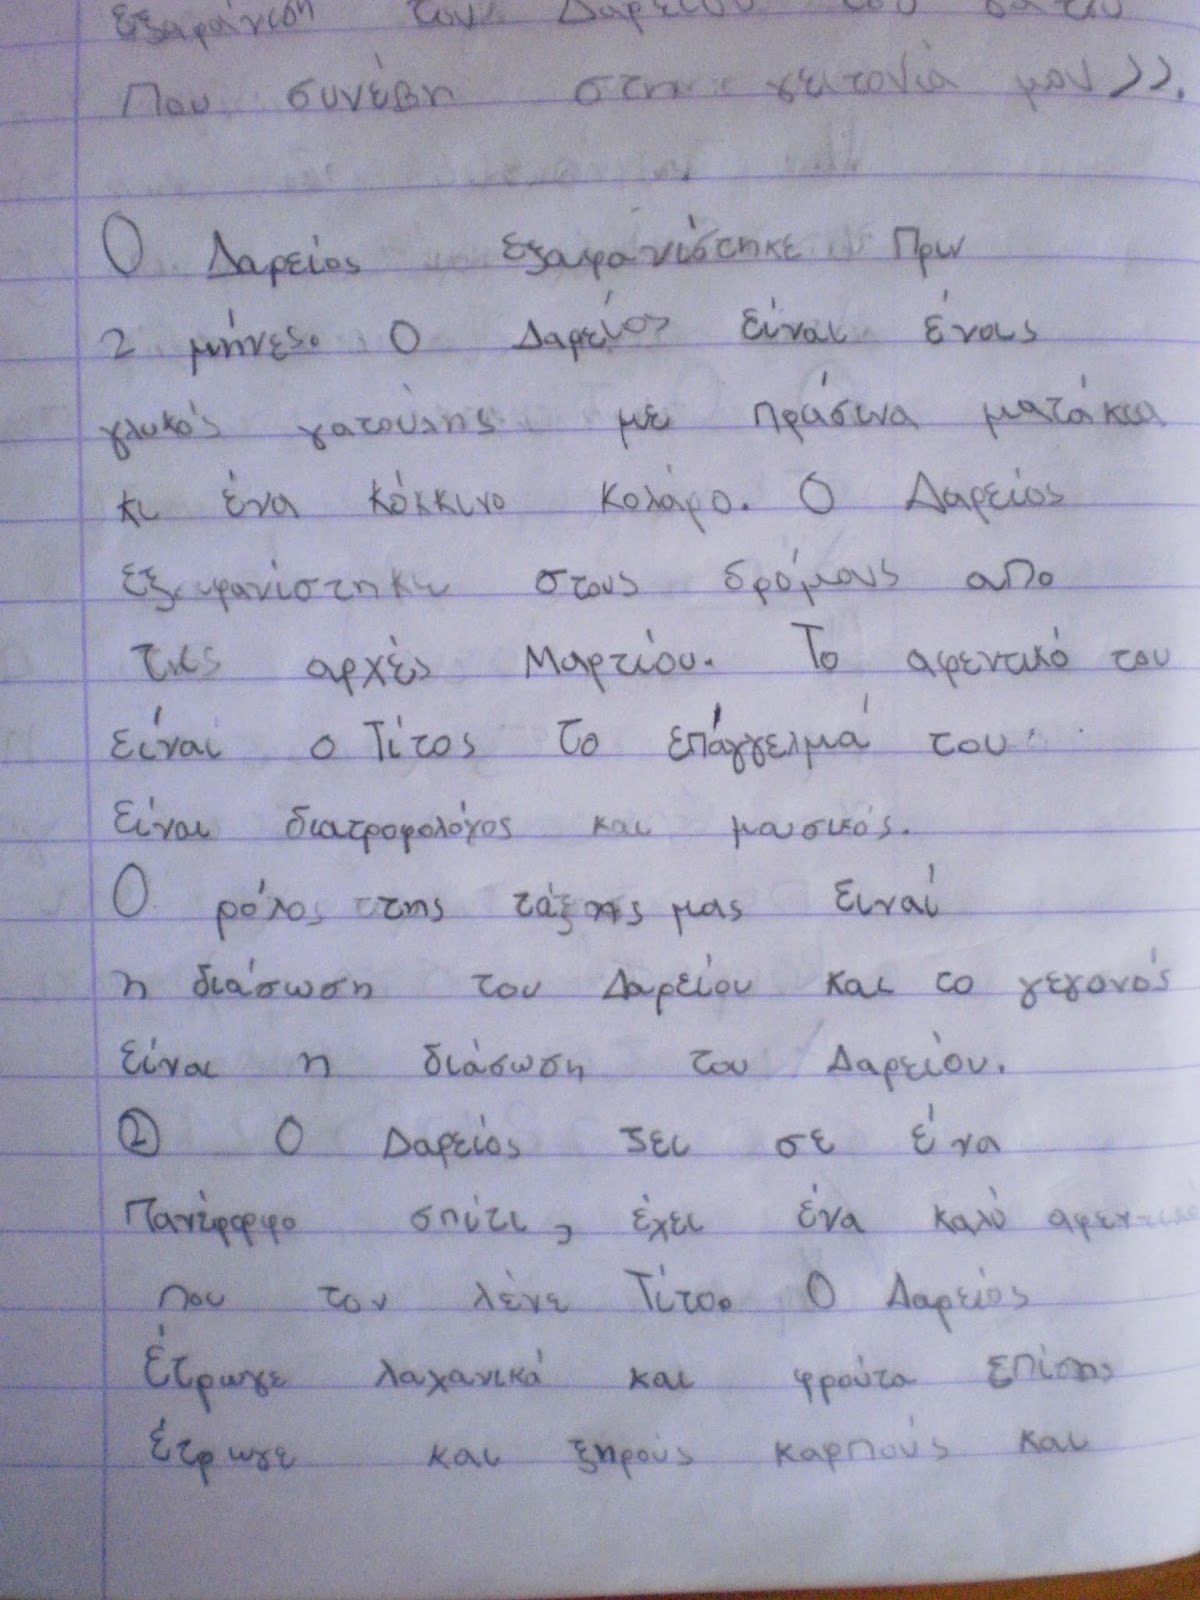 εξαφάνιση του Δαρείου του γάτου
που συνέβη στη γειτονιά μου»,
Ο Δαρείος εξαφανίστηκε πριν
2 μήνες. Ο Δαρείος είναι ένας
γλυκός γατούλης με πράσινα ματάκια
κι ένα κόκκινο κολάρο. Ο Δαρείος
εξαφανίστηκε στους δρόμους απο
τις αρχές Μαρτίου. Το αφεντικό του
είναι ο Τίτος το επάγγελμά του
είναι διατροφολόγος και μουσικός.
Ο ρόλος της τάξης μας ειναί
η διάσωση του Δαρείου και το γεγονός
είναι η διάσωση του Δαρείου.
② Ο Δαρείος ζει σε ένα
πανέμορφο σπίτι, έχει ένα καλό αφεντικό
που τον λένε Τίτο. Ο Δαρείος
έτρωγε λαχανικά και φρούτα επίσης
έτρωγε και ξηρούς καρπούς και